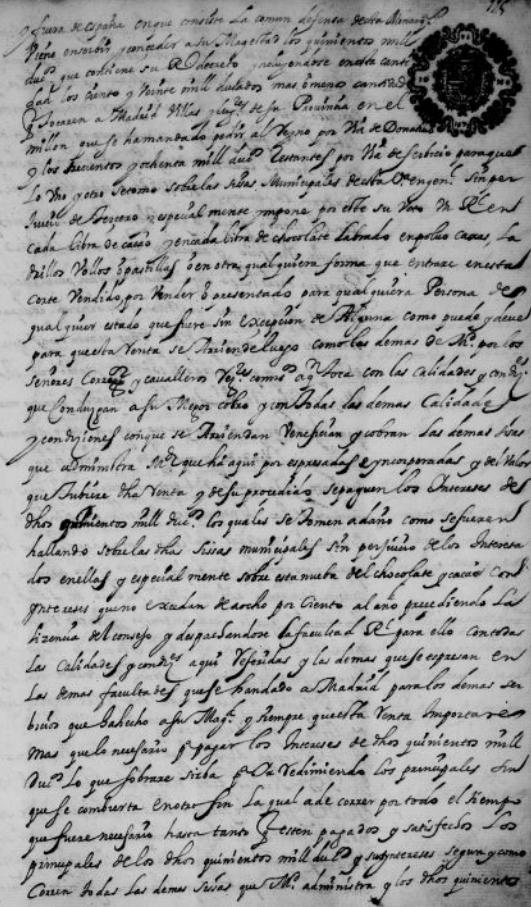 115
y fuera de españa en que consiste la comun defensa desta Monarqª
Viene en servir y conceder a su Magestad los quinientos mill
ducˢ que contiene su Rˡ decreto yncluyendose en esta canti
dad los ciento y Veinte mill ducados mas o menos cantidad
q̄ tocaren a Madrid Villas y lugˢ de su Provinçia en el
millon que se ha mandado pedir al Reyno por Via de Donatibo
y los trecientos y ochenta mill ducˢ restantes por Via de serbicio para que
lo Uno y otro se tome sobre las sisas Municipales de esta Vª en genˡ sin per
Juicio de tercero y especial mente ympone por este su Voto Un Rˡ en
cada libra de cacao y en cada libra de chocolate labrado en polvo caxas, la
drillos Vollos o pastillas o en otra qualquiera forma que entrare en esta
Corte Vendido, por Vender o presentado para qualquiera Persona de
qualquier estado que fuere sin excepcion de Alguna como puede y deve
para que esta Renta se Arriende luego como las demas de Mᵈ por los
señores Corregᵒʳ y cavalleros Regˢ comisˢ a qⁿ toca con las calidades y condiˢ
que Conduzgan a su Mejor cobro y con todas las demas Calidades
y condiziones con que se Arriendan Venefician y cobran las demas sisas
que administra Mᵈ que ha aqui por espresadas e yncorporadas y del Valor
que tubiere dha Renta y de su procedido se paguen los Intereses de
dhos quinientos mill ducˢ los quales se tomen a daño como se fueren
hallando sobre las dhas sissas municipales sin perjuicio de los Interesa
dos en ellas y especial mente sobre esta nueba del chocolate y cacao Con
Yntereses que no excedan de a ocho por Ciento al año precediendo La
lizencia del consejo y despachandose la facultad Rˡ para ello con todas
Las Calidades y condiˢ aqui Referidas y las demas que se espresan en
Las demas facultades que se han dado a Madrid para los demas ser
bicios que ha hecho a su Magᵈ y siempre que esta Renta Importare
mas que lo necesario pª pagar los Intereses de dhos quinientos mill
Ducˢ lo que sobrare sirba pª Ir Redimiendo los principales sin
que se combierta en otro fin La qual a de correr por todo el tiempo
que fuere necesario hasta tanto q̄ esten pagados y satisfechos Los
principales de los dhos quinientos mill ducˢ y sus yntereses segun y como
Corren todas Las demas sissas que Mᵈ administra y los dhos quinientos